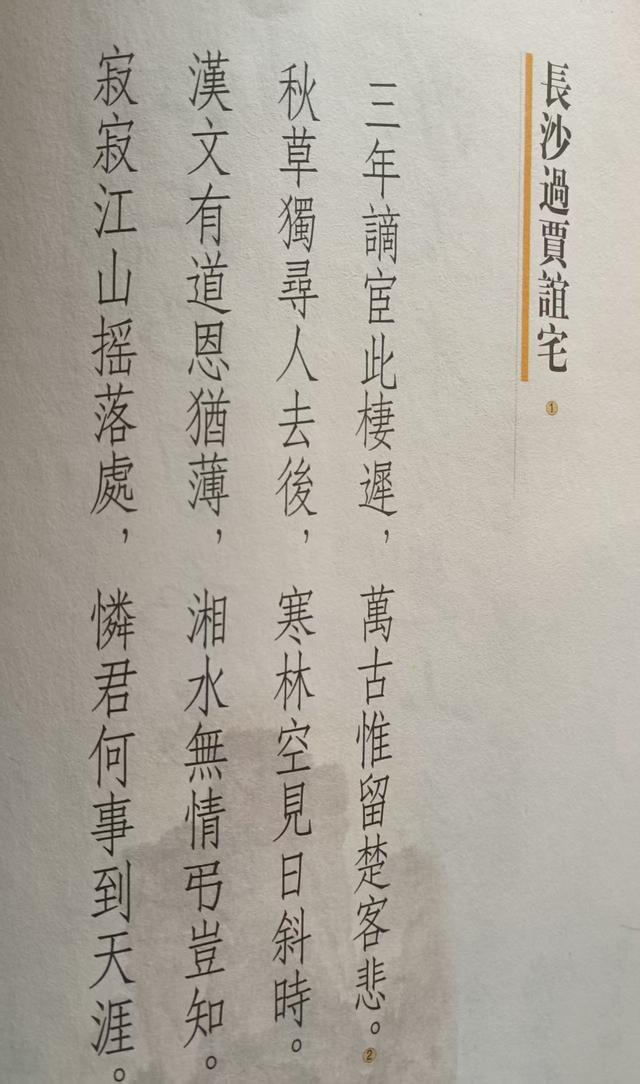 長沙過賈誼宅①
三年謫宦此棲遲，萬古惟留楚客悲。②
秋草獨尋人去後，寒林空見日斜時。
漢文有道恩猶薄，湘水無情弔豈知。
寂寂江山摇落處，憐君何事到天涯。